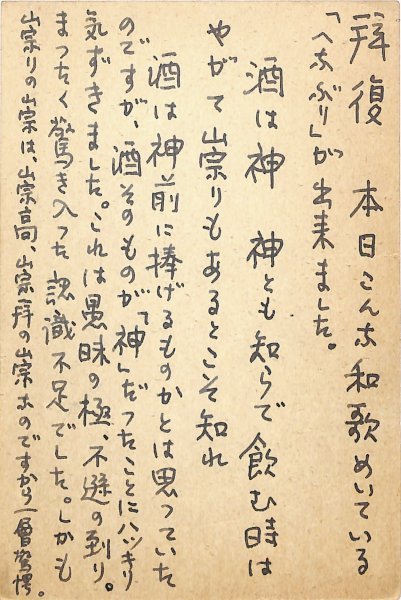 拜復　本日こんな和歌めいている
「へなぶり」が出来ました。
酒は神　神とも知らで飲む時は
やがて崇りもあるとこそ知れ
酒は神前に捧げるものかとは思っていた
のですが、酒そのものが「神」だったことにハッキリ
気ずきました。これは愚昧の極、不遜の到り。
まったく驚き入った認識不足でした。しかも
崇りの崇は、崇高、崇拜の崇なのですから一層驚愕。